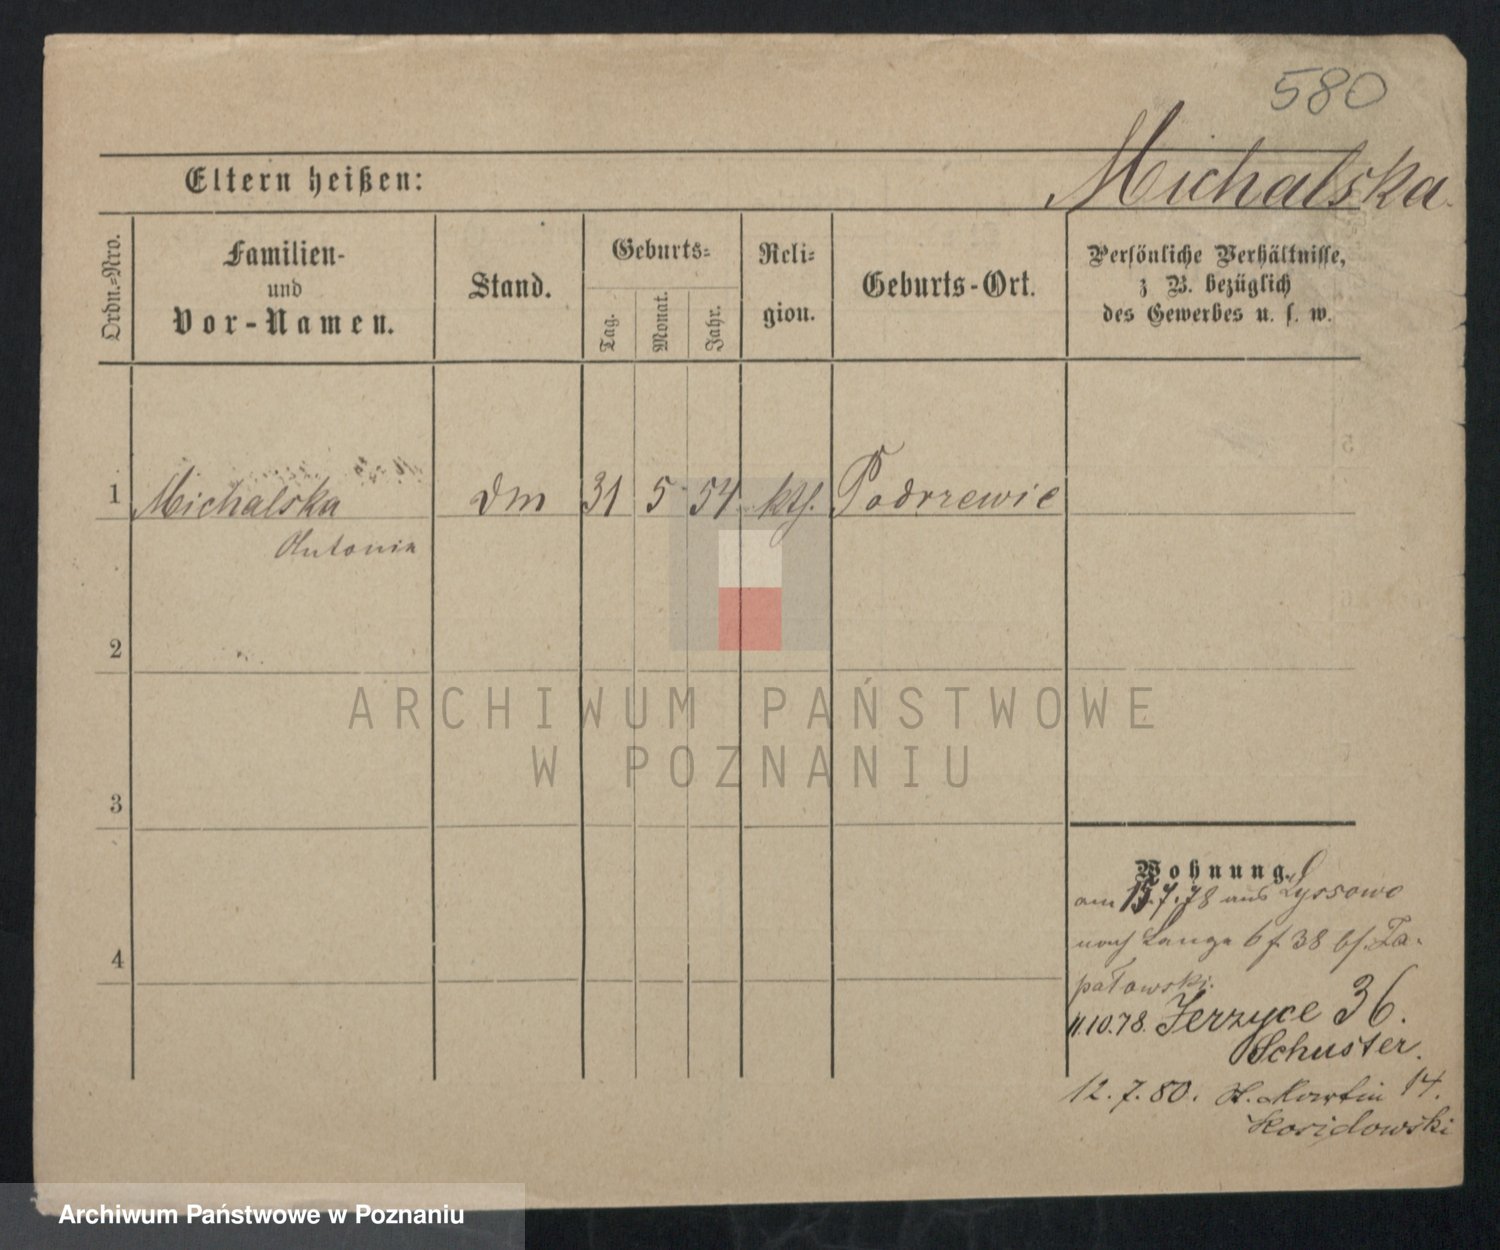 580
Michalska
Eltern heißen:
Ordn.=Nro.
Familien-
und
Vor-Namen.
Stand.
Geburts=
Tag.
Monat.
Jahr.
Reli=
gion.
Geburts-Ort.
Persönliche Verhältnisse,
z B. bezüglich
des Gewerbes u. s. w.
1 Michalska Dm 31 5 54 kth. Podrzewie
Antonia
2
3
4
Wohnung.
am 15.7.78 aus Lyssowo
nach Lange 38 bei Za-
patowski.
11.10.78. Jerzyce 36.
Schuster.
12.7.80. St. Martin 14.
Kosidowski
ARCHIWUM PAŃSTWOWE
W POZNANIU
Archiwum Państwowe w Poznaniu